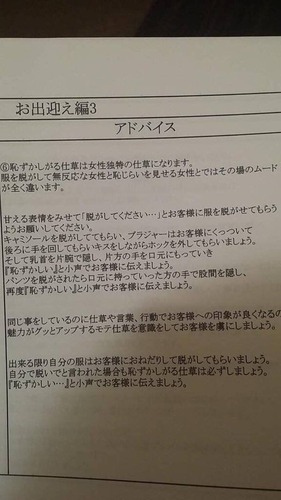 お出迎え編3
アドバイス
⑥恥ずかしがる仕草は女性独特の仕草になります。
服を脱がして無反応な女性と恥じらいを見せる女性とではその場のムード
が全く違います。
甘える表情をみせて「脱がしてください…」とお客様に服を脱がせてもらう
ようお願いしてください。
キャミソールを脱がしててもらい、ブラジャーはお客様にくっついて
後ろに手を回してもらいキスをしながらホックを外してもらいましょう。
そして乳首を片腕で隠し、片方の手を口元にもっていき
『恥ずかしい』と小声でお客様に伝えましょう。
パンツを脱がされたら口元に持っていった方の手で股間を隠し、
再度『恥ずかしい』と小声でお客様に伝えましょう。
同じ事をしているのに仕草や言葉、行動でお客様への印象が良くなるの
魅力がグッとアップするモテ仕草を意識をしてお客様を虜にしましょう。
出来る限り自分の服はお客様におねだりして脱がしてもらいましょう。
自分で脱いでと言われた場合も恥ずかしがる仕草は必ずしましょう。
『恥ずかしい…』と小声でお客様に伝えましょう。